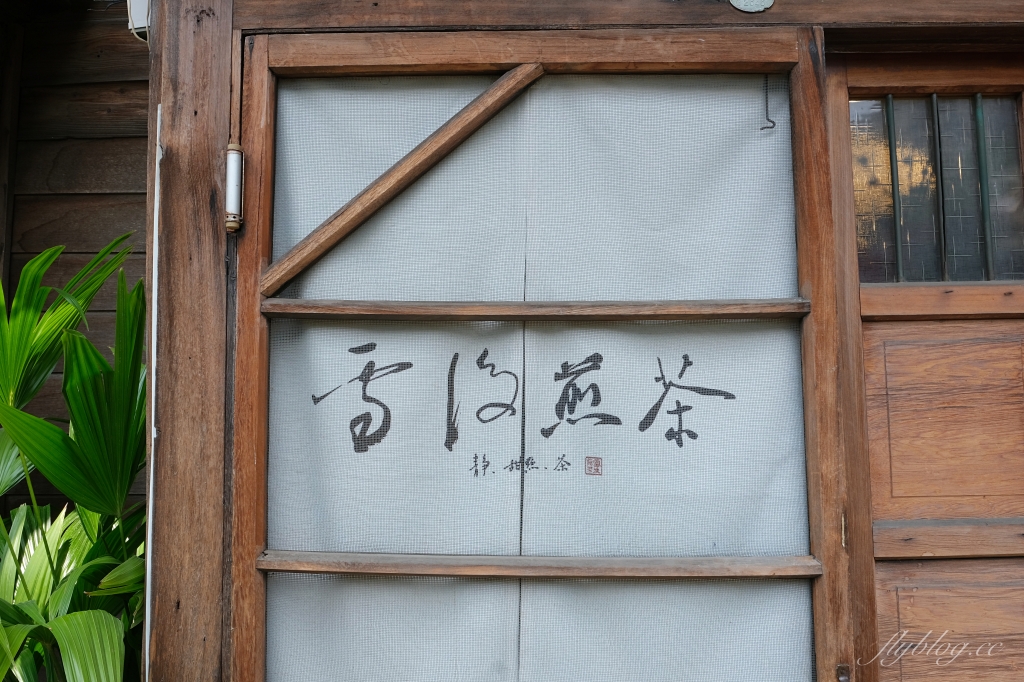 雪後煎茶
靜、甜點、茶
flyblog.cc